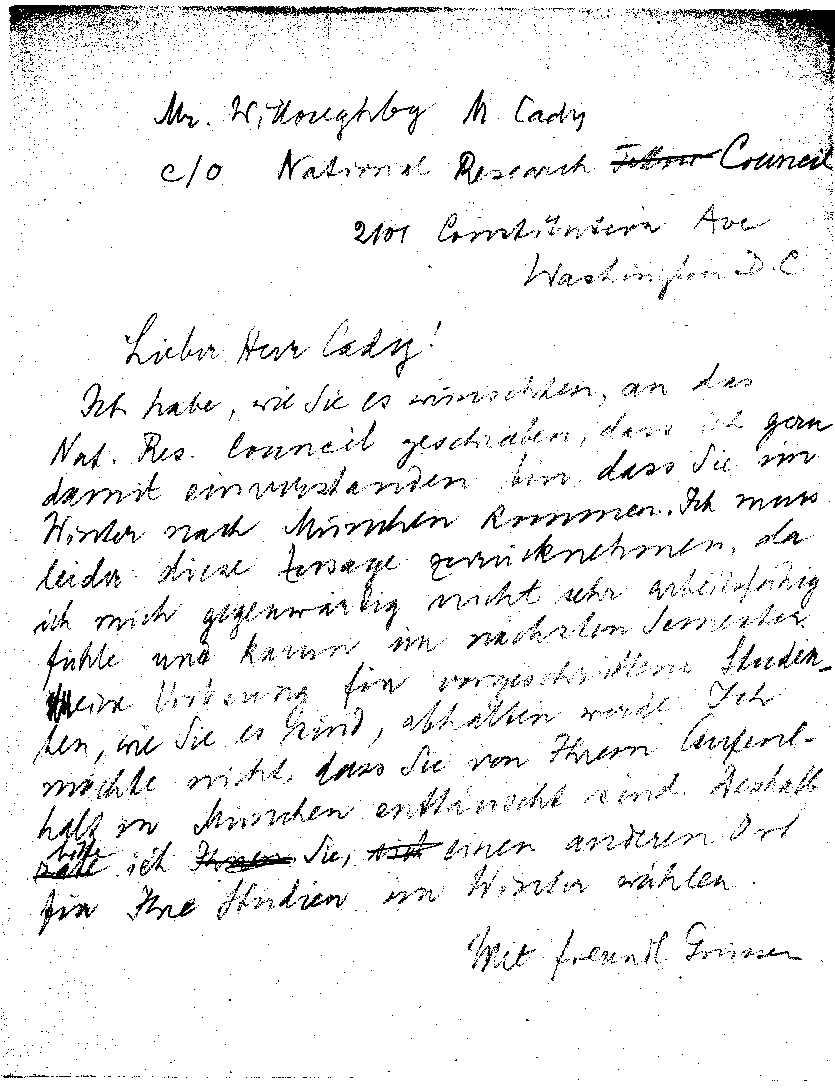 Mr. Willoughby M Cady
c/o National Research Fellow Council
2101 Constitution Ave
Washington D. C.
Lieber Herr Cady!
Ich habe, wie Sie es wünschten, an das
Nat. Res. Council geschrieben, dass ich gern
damit einverstanden bin dass Sie im
Winter nach München kommen. Ich muss
leider diese Zusage zurücknehmen, da
ich mich gegenwärtig nicht sehr arbeitsfähig
fühle und kaum im nächsten Semester
eine Vorlesung für vorgeschrittene Studen-
ten, wie Sie es sind, abhalten werde. Ich
möchte nicht, dass Sie von Ihrem Aufent-
halt in München enttäuscht sind. Deshalb
bitte
rate ich Ihnen Sie, sich einen anderen Ort
für Ihre Studien im Winter wählen.
Mit freundl Grüssen